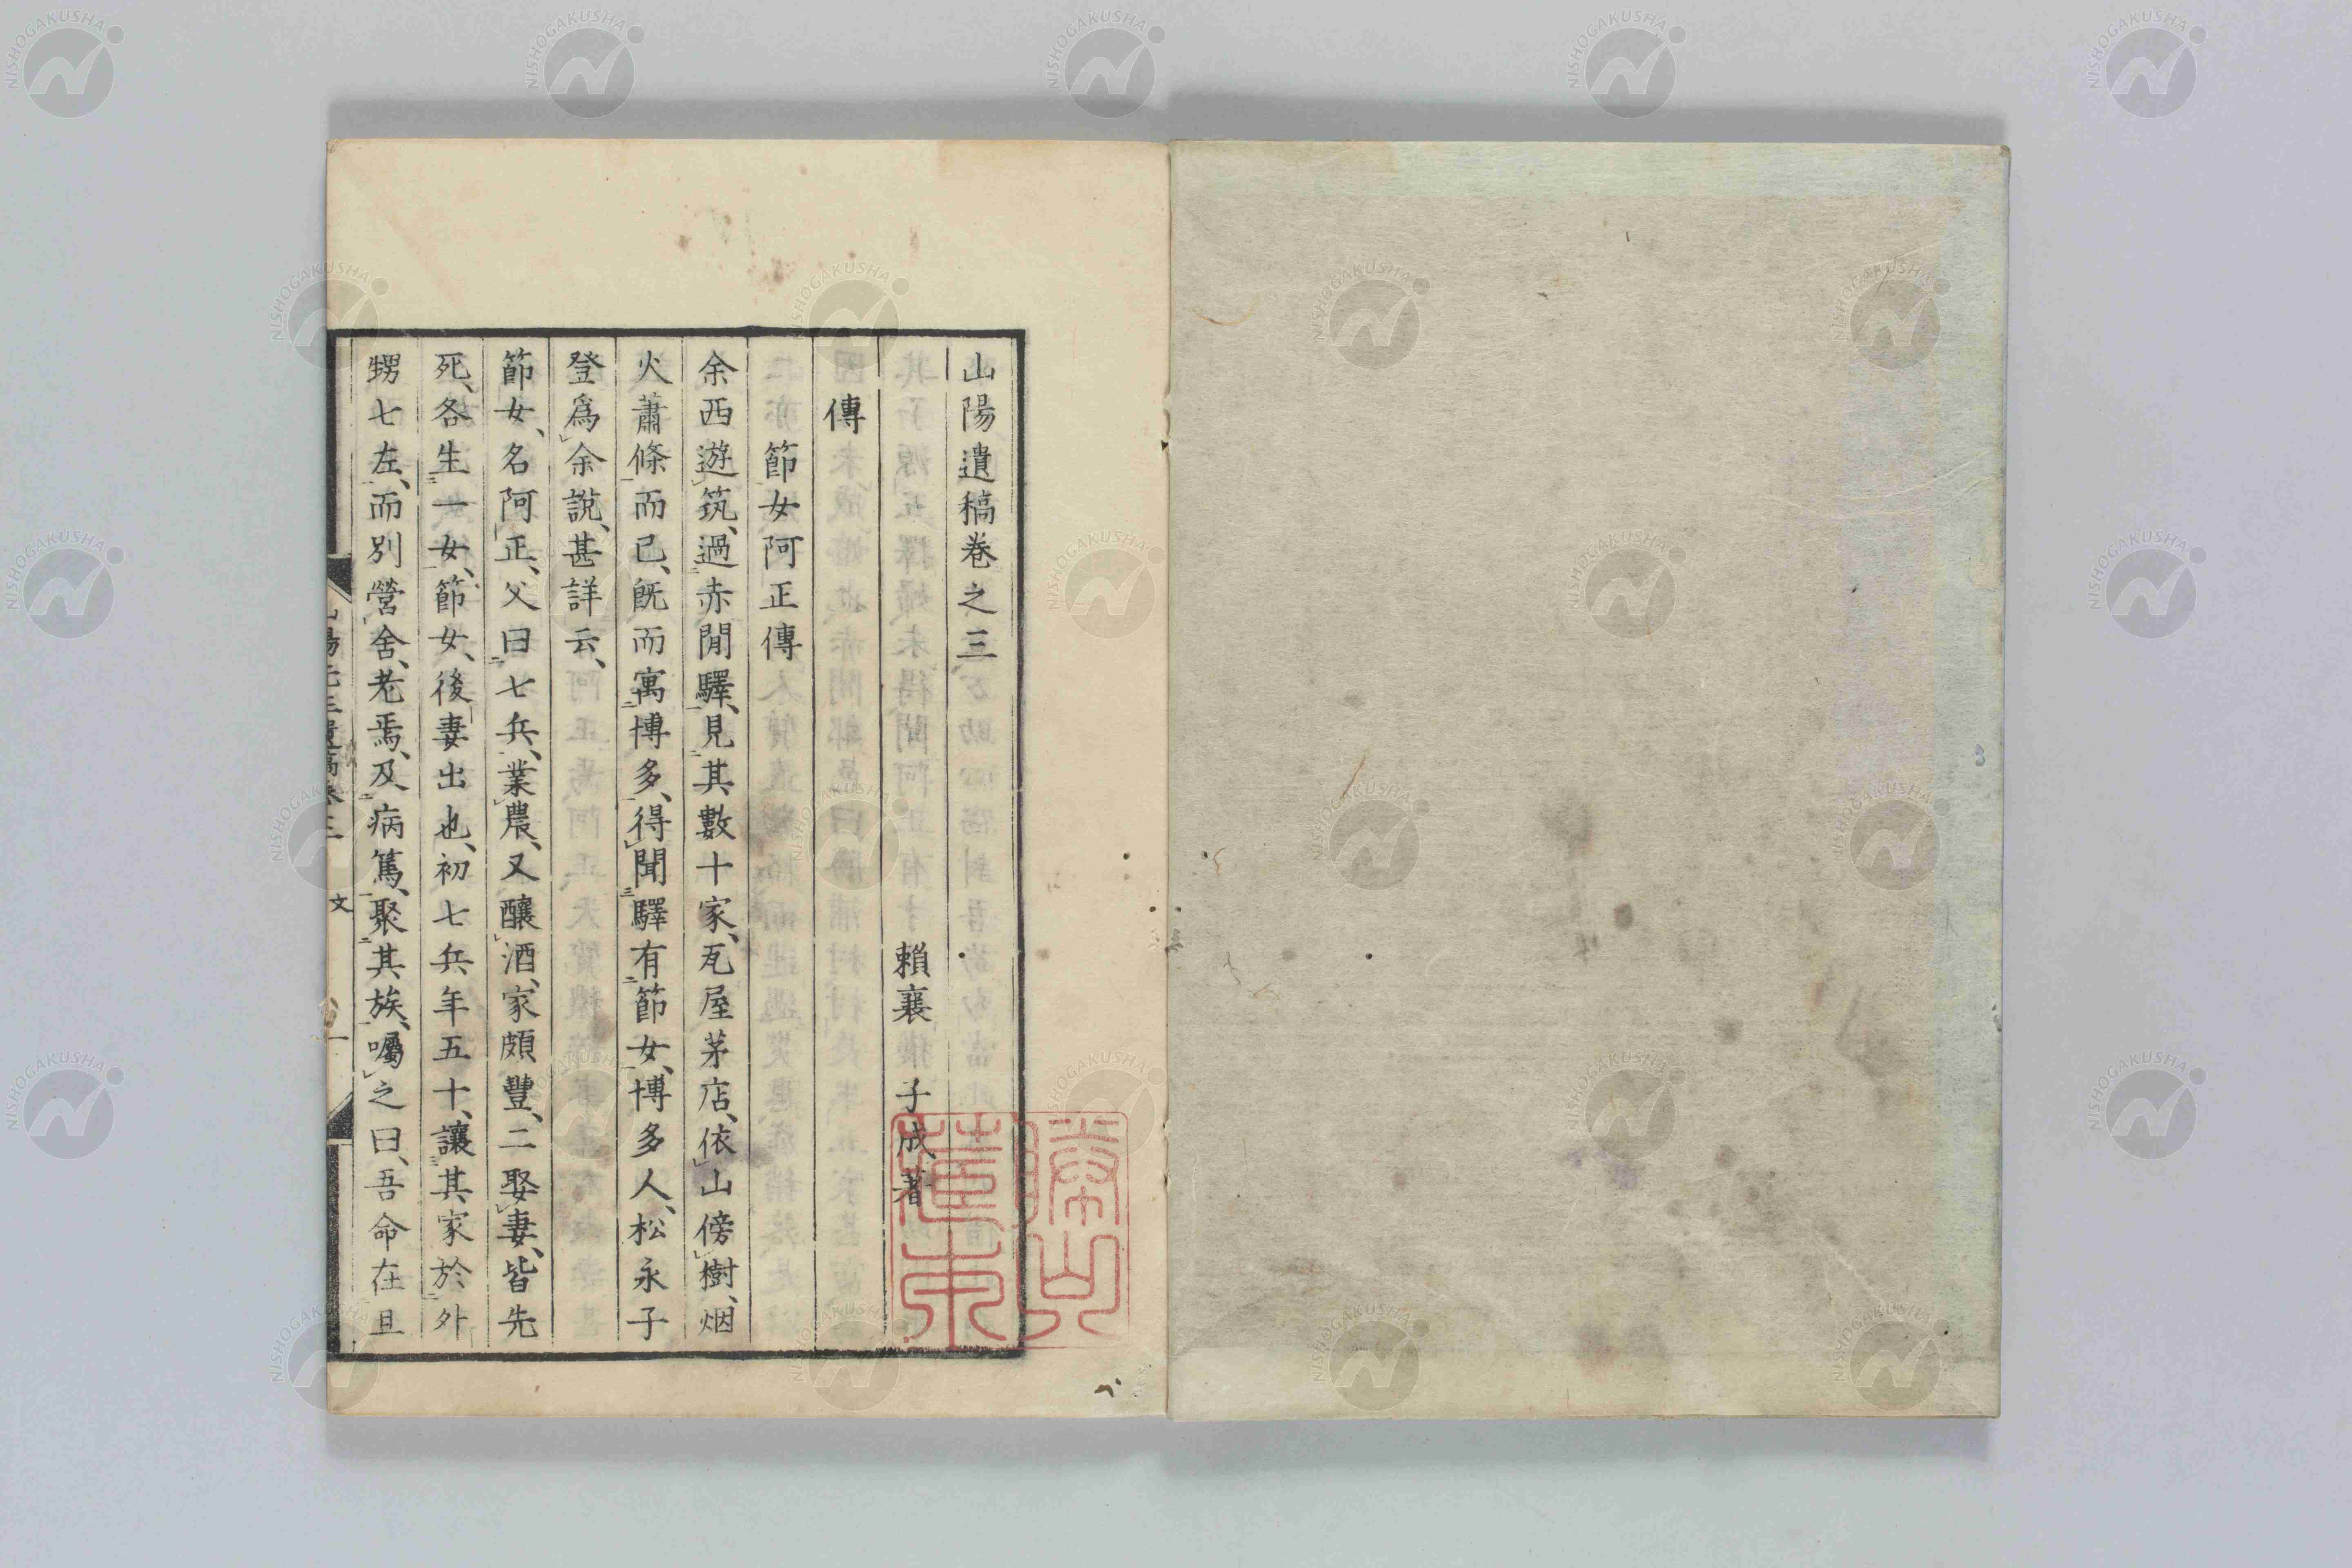 山陽遺稿卷之三
賴襄 子成著
傳
節女阿正傳
余西遊筑、過赤間驛、見其數十家、瓦屋茅店、依山傍樹、烟
火蕭條而已、既而寓博多、得聞驛有節女、博多人、松永子
登爲余說、甚詳云、
節女、名阿正、父曰七兵、業農、又釀酒、家頗豐、二娶妻、皆先
死、各生一女、節女、後妻出也、初七兵年五十、讓其家於外
甥七左、而別營舍、老焉、及病篤、聚其族、囑之曰、吾命在旦
文
一
NISHOGAKUSHA